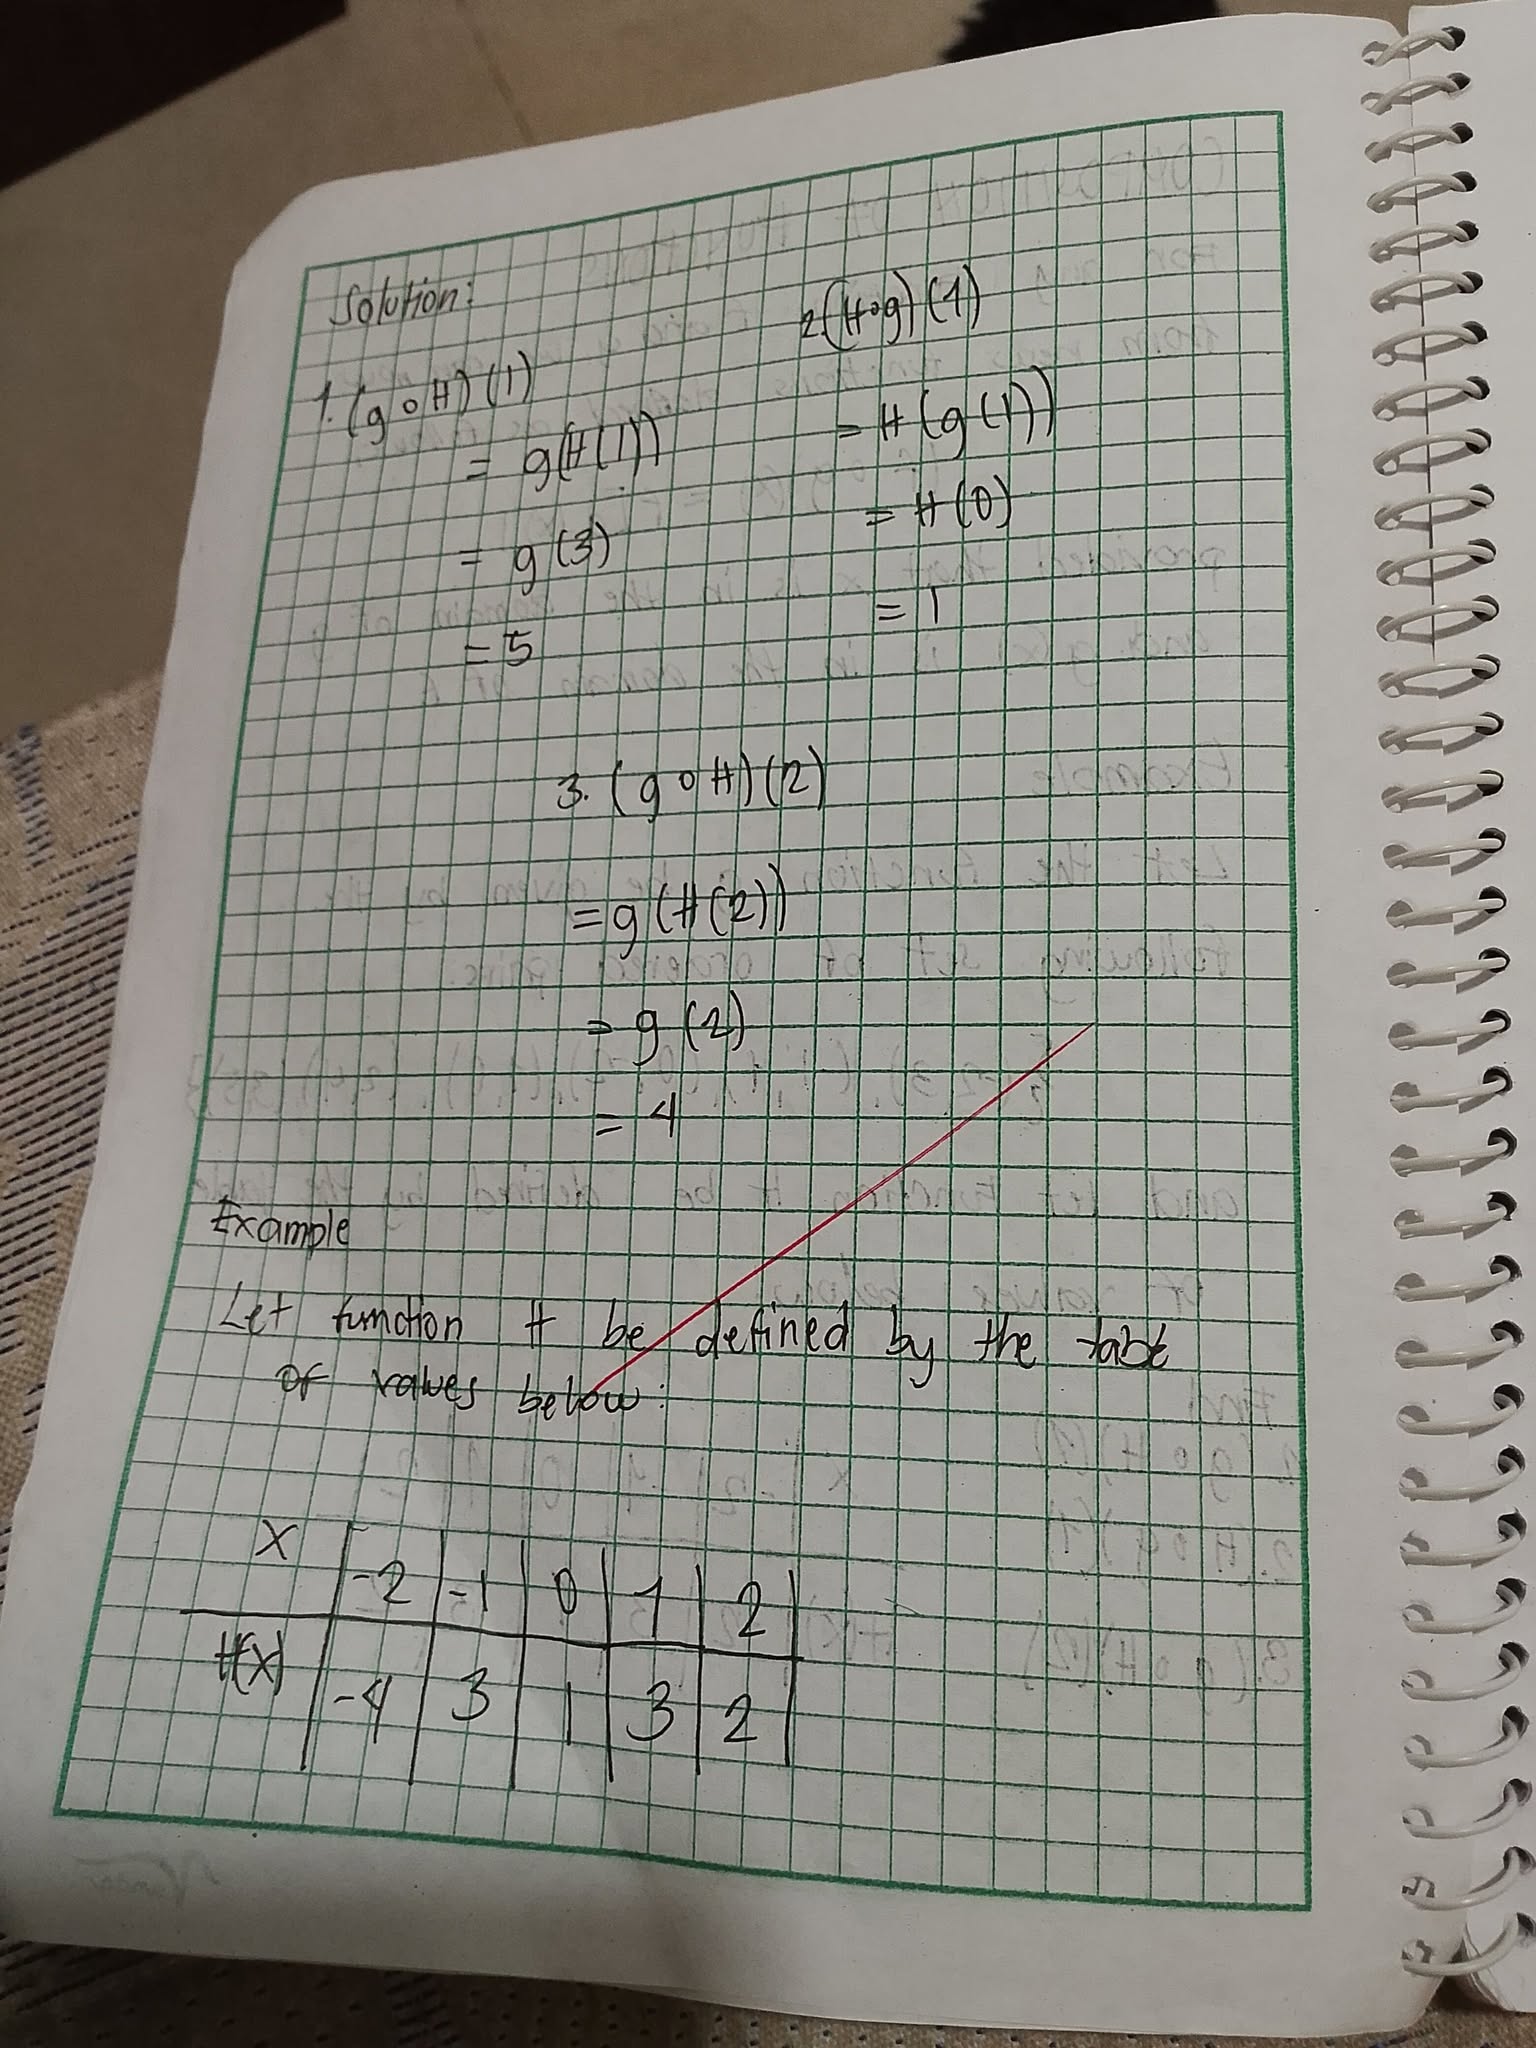 Solution:
1. (g o H) (1)
= g(H(1))
= g(3)
= 5
2.(H∘g) (1)
= H (g(1))
= H (0)
= 1
3. (g o H) (2)
= g (H(2))
= g (2)
= 4
Example
Let function H be defined by the table
of values below:
X -2 -1 0 1 2
H(X) -4 3 1 3 2